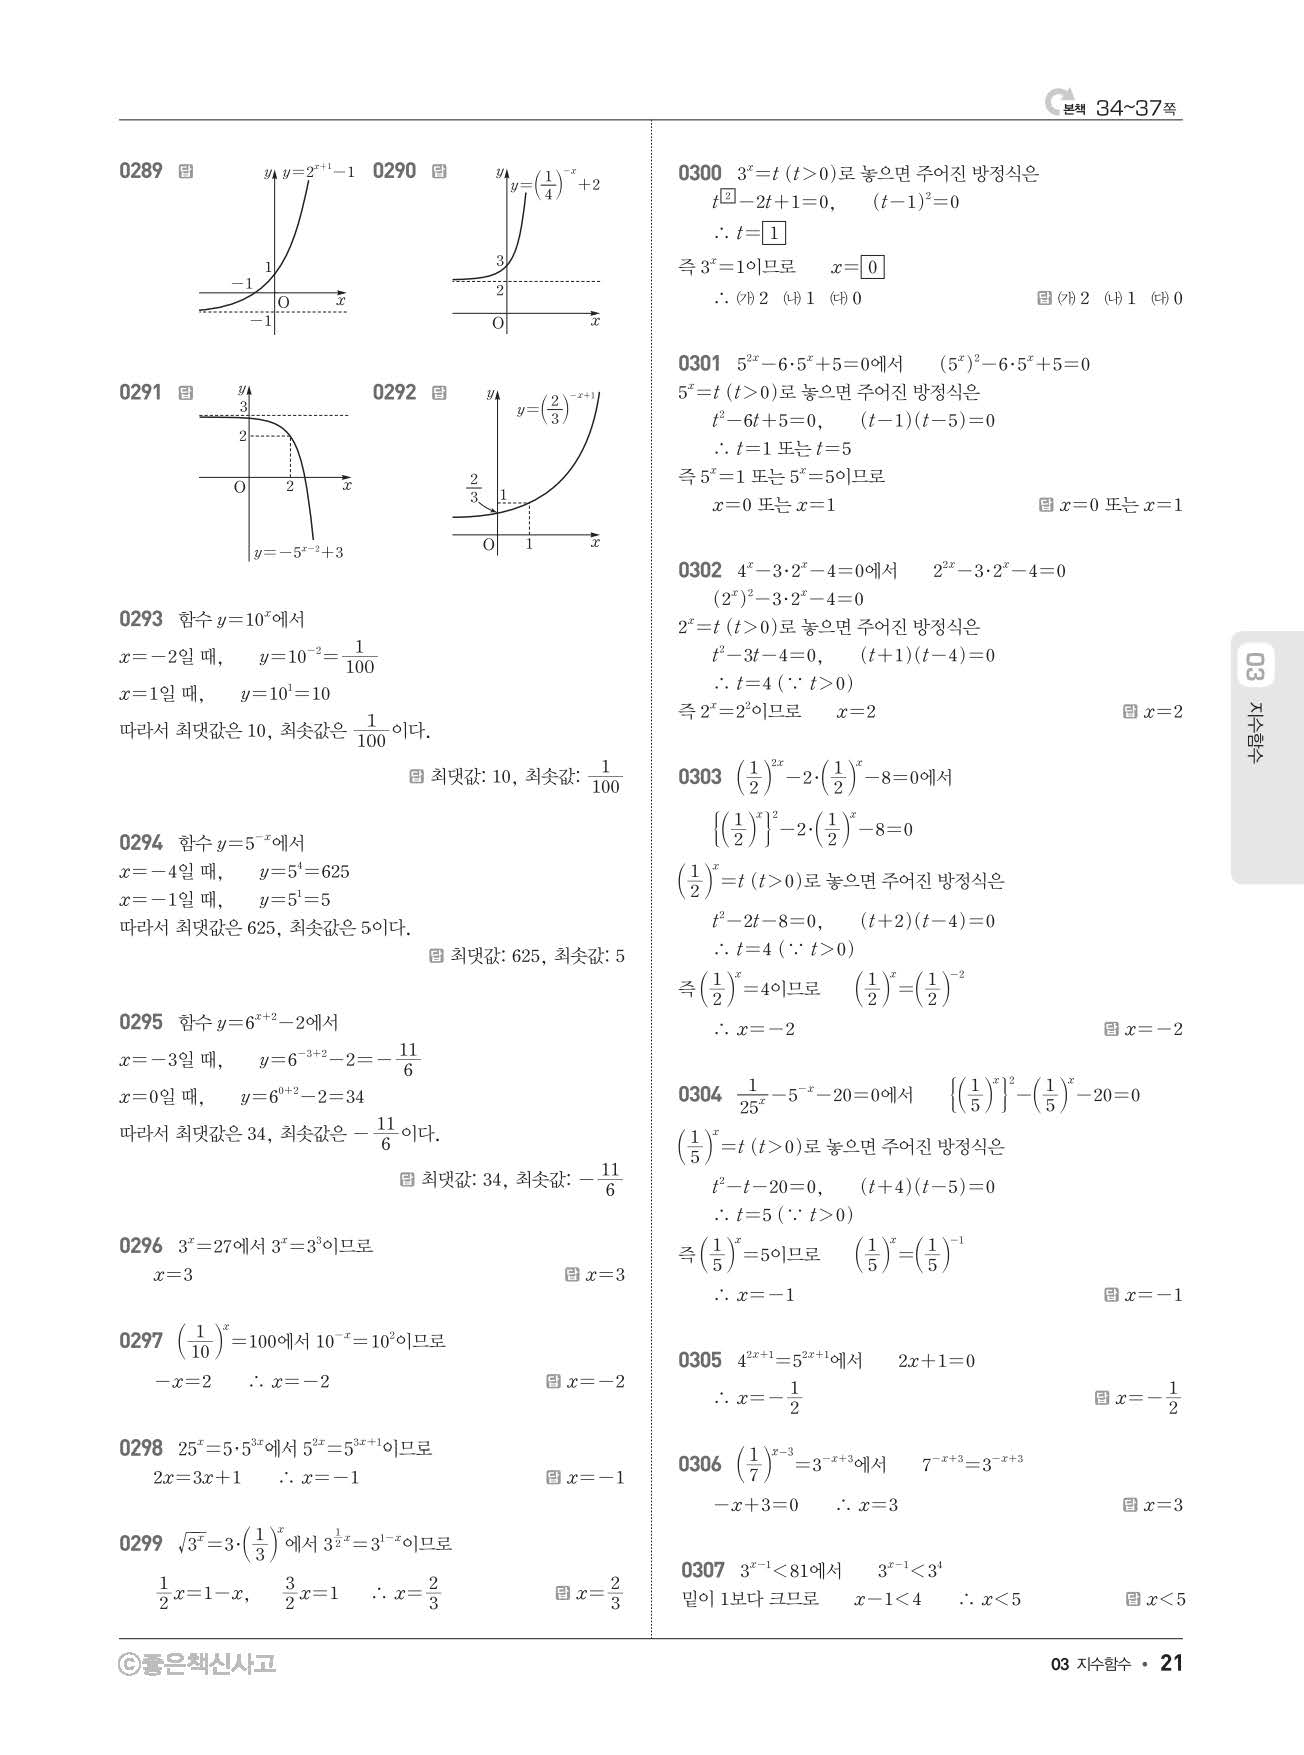 본책 34~37쪽
0289 답 y=2^{x+1}-1
y
1
-1
O
x
-1
0290 답 y=(1/4)^{-x}+2
y
3
2
O
x
0291 답
y
3
2
O
2
x
y=-5^{x-2}+3
0292 답 y=(2/3)^{-x+1}
y
2/3
1
O
1
x
0293 함수 y=10^x에서
x=-2일 때, y=10^{-2}=1/100
x=1일 때, y=10^1=10
따라서 최댓값은 10, 최솟값은 1/100이다.
답 최댓값: 10, 최솟값: 1/100
0294 함수 y=5^{-x}에서
x=-4일 때, y=5^4=625
x=-1일 때, y=5^1=5
따라서 최댓값은 625, 최솟값은 5이다.
답 최댓값: 625, 최솟값: 5
0295 함수 y=6^{x+2}-2에서
x=-3일 때, y=6^{-3+2}-2=-11/6
x=0일 때, y=6^{0+2}-2=34
따라서 최댓값은 34, 최솟값은 -11/6이다.
답 최댓값: 34, 최솟값: -11/6
0296 3^x=27에서 3^x=3^3이므로
x=3 답 x=3
0297 (1/10)^x=100에서 10^{-x}=10^2이므로
-x=2 ∴ x=-2 답 x=-2
0298 25^x=5·5^{3x}에서 5^{2x}=5^{3x+1}이므로
2x=3x+1 ∴ x=-1 답 x=-1
0299 √(3^x)=3·(1/3)^x에서 3^{(1/2)x}=3^{1-x}이므로
1/2x=1-x, 3/2x=1 ∴ x=2/3 답 x=2/3
0300 3^x=t (t>0)로 놓으면 주어진 방정식은
t^[2]-2t+1=0, (t-1)^2=0
∴ t=[1]
즉 3^x=1이므로 x=[0]
∴ ㈎ 2 ㈏ 1 ㈐ 0 답 ㈎ 2 ㈏ 1 ㈐ 0
0301 5^{2x}-6·5^x+5=0에서 (5^x)^2-6·5^x+5=0
5^x=t (t>0)로 놓으면 주어진 방정식은
t^2-6t+5=0, (t-1)(t-5)=0
∴ t=1 또는 t=5
즉 5^x=1 또는 5^x=5이므로
x=0 또는 x=1 답 x=0 또는 x=1
0302 4^x-3·2^x-4=0에서 2^{2x}-3·2^x-4=0
(2^x)^2-3·2^x-4=0
2^x=t (t>0)로 놓으면 주어진 방정식은
t^2-3t-4=0, (t+1)(t-4)=0
∴ t=4 (∵ t>0)
즉 2^x=2^2이므로 x=2 답 x=2
0303 (1/2)^{2x}-2·(1/2)^x-8=0에서
{(1/2)^x}^2-2·(1/2)^x-8=0
(1/2)^x=t (t>0)로 놓으면 주어진 방정식은
t^2-2t-8=0, (t+2)(t-4)=0
∴ t=4 (∵ t>0)
즉 (1/2)^x=4이므로 (1/2)^x=(1/2)^{-2}
∴ x=-2 답 x=-2
0304 1/25^x-5^{-x}-20=0에서 {(1/5)^x}^2-(1/5)^x-20=0
(1/5)^x=t (t>0)로 놓으면 주어진 방정식은
t^2-t-20=0, (t+4)(t-5)=0
∴ t=5 (∵ t>0)
즉 (1/5)^x=5이므로 (1/5)^x=(1/5)^{-1}
∴ x=-1 답 x=-1
0305 4^{2x+1}=5^{2x+1}에서 2x+1=0
∴ x=-1/2 답 x=-1/2
0306 (1/7)^{x-3}=3^{-x+3}에서 7^{-x+3}=3^{-x+3}
-x+3=0 ∴ x=3 답 x=3
0307 3^{x-1}<81에서 3^{x-1}<3^4
밑이 1보다 크므로 x-1<4 ∴ x<5 답 x<5
03 지수함수
ⓒ좋은책신사고
03 지수함수 • 21